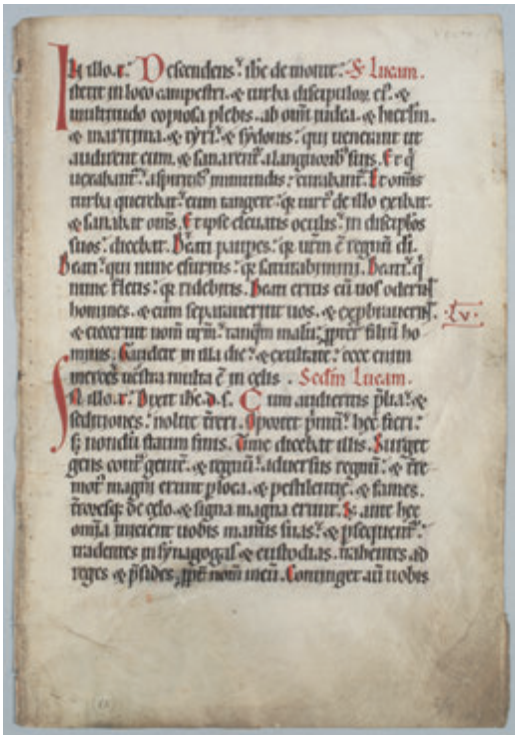 In illo. t. Descendens ihc de monte. S. Lucam.
stetit in loco campestri. & turba discipulor ei. &
multitudo copiosa plebis. ab omi iudea. & hierlm.
& maritima. & tyri. & sydonis. qui venerant ut
audirent eum. & sanarent a languorib suis. Et q
uexabant a spiritib immundis. curabant. Et omis
turba querebat eum tangere. qr uirt de illo exibat.
& sanabat oms. Et ipse eleuatis oculis in disciplos
suos. dicebat. Beati paupes. qr urm e regnu di.
Beati qui nunc esuritis. qr saturabimini. Beati q
nunc fletis. qr ridebitis. Beati eritis cu uos oderint
homines. & cum separauerint uos. & exprobrauerint
.Lv.
& eiecerint nom urm. tanqm malu. ppter filiu ho
minis. Gaudete in illa die. & exultate. ecce enim
merces uestra multa e in celis. Sedm Lucam.
In illo. t. Dixit ihc. d. s. Cum audieritis plia. &
seditiones. nolite treri. Oportet primu hec fieri.
s; nondu statim finis. Tunc dicebat illis. Surget
gens cont gente. & regnu aduersus regnu. & tre
mot magni erunt p loca. & pestilentie. & fames.
trroresq; de celo. & signa magna erunt. S; ante hec
omia inicient uobis manus suas. & psequent.
tradentes in synagogas & custodias. trahentes ad
reges & psides. ppt nom meu. Continget au uobis